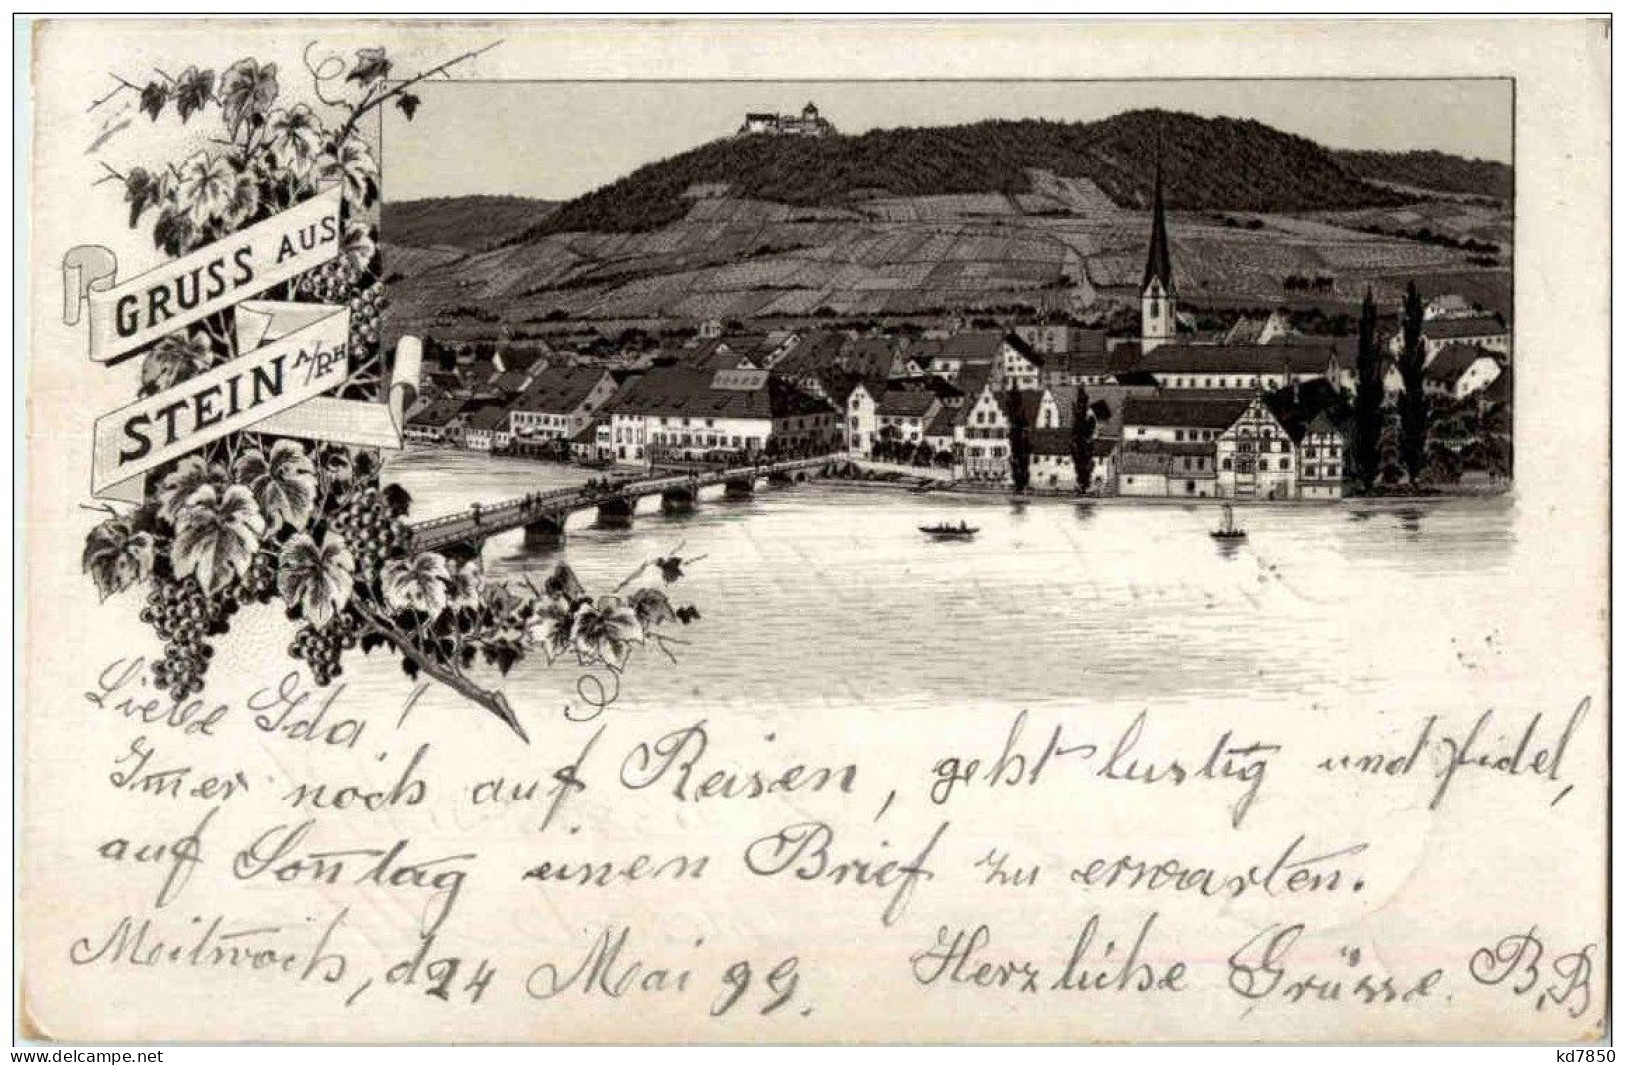 GRUSS AUS
STEIN A/RH
Liebe Ida!
Imer noch auf Reisen, geht lustig und fidel,
auf Sontag einen Brief zu erwarten.
Mitwoch, d 24 Mai 99. Herzliche Grüsse. B. B.
www.delcampe.net
kd7850